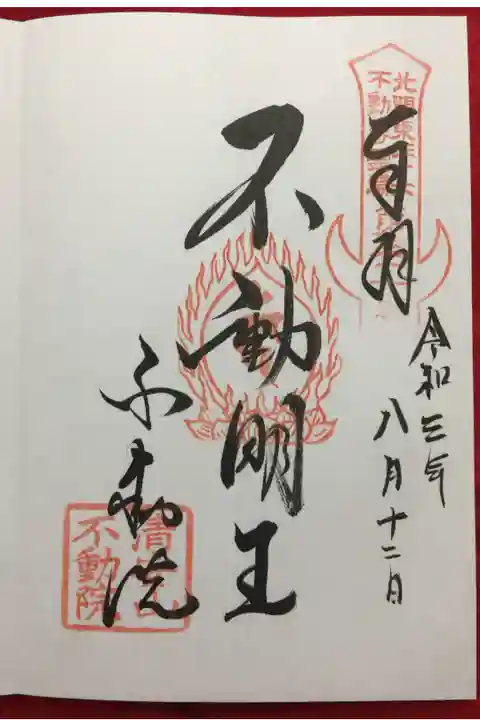 奉拝
令和三年
八月十二日
不動明王
不動院
北関東三十六
不動尊霊場
不動院